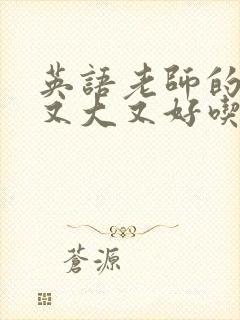 英語老師的
又大又好喫
蒼源